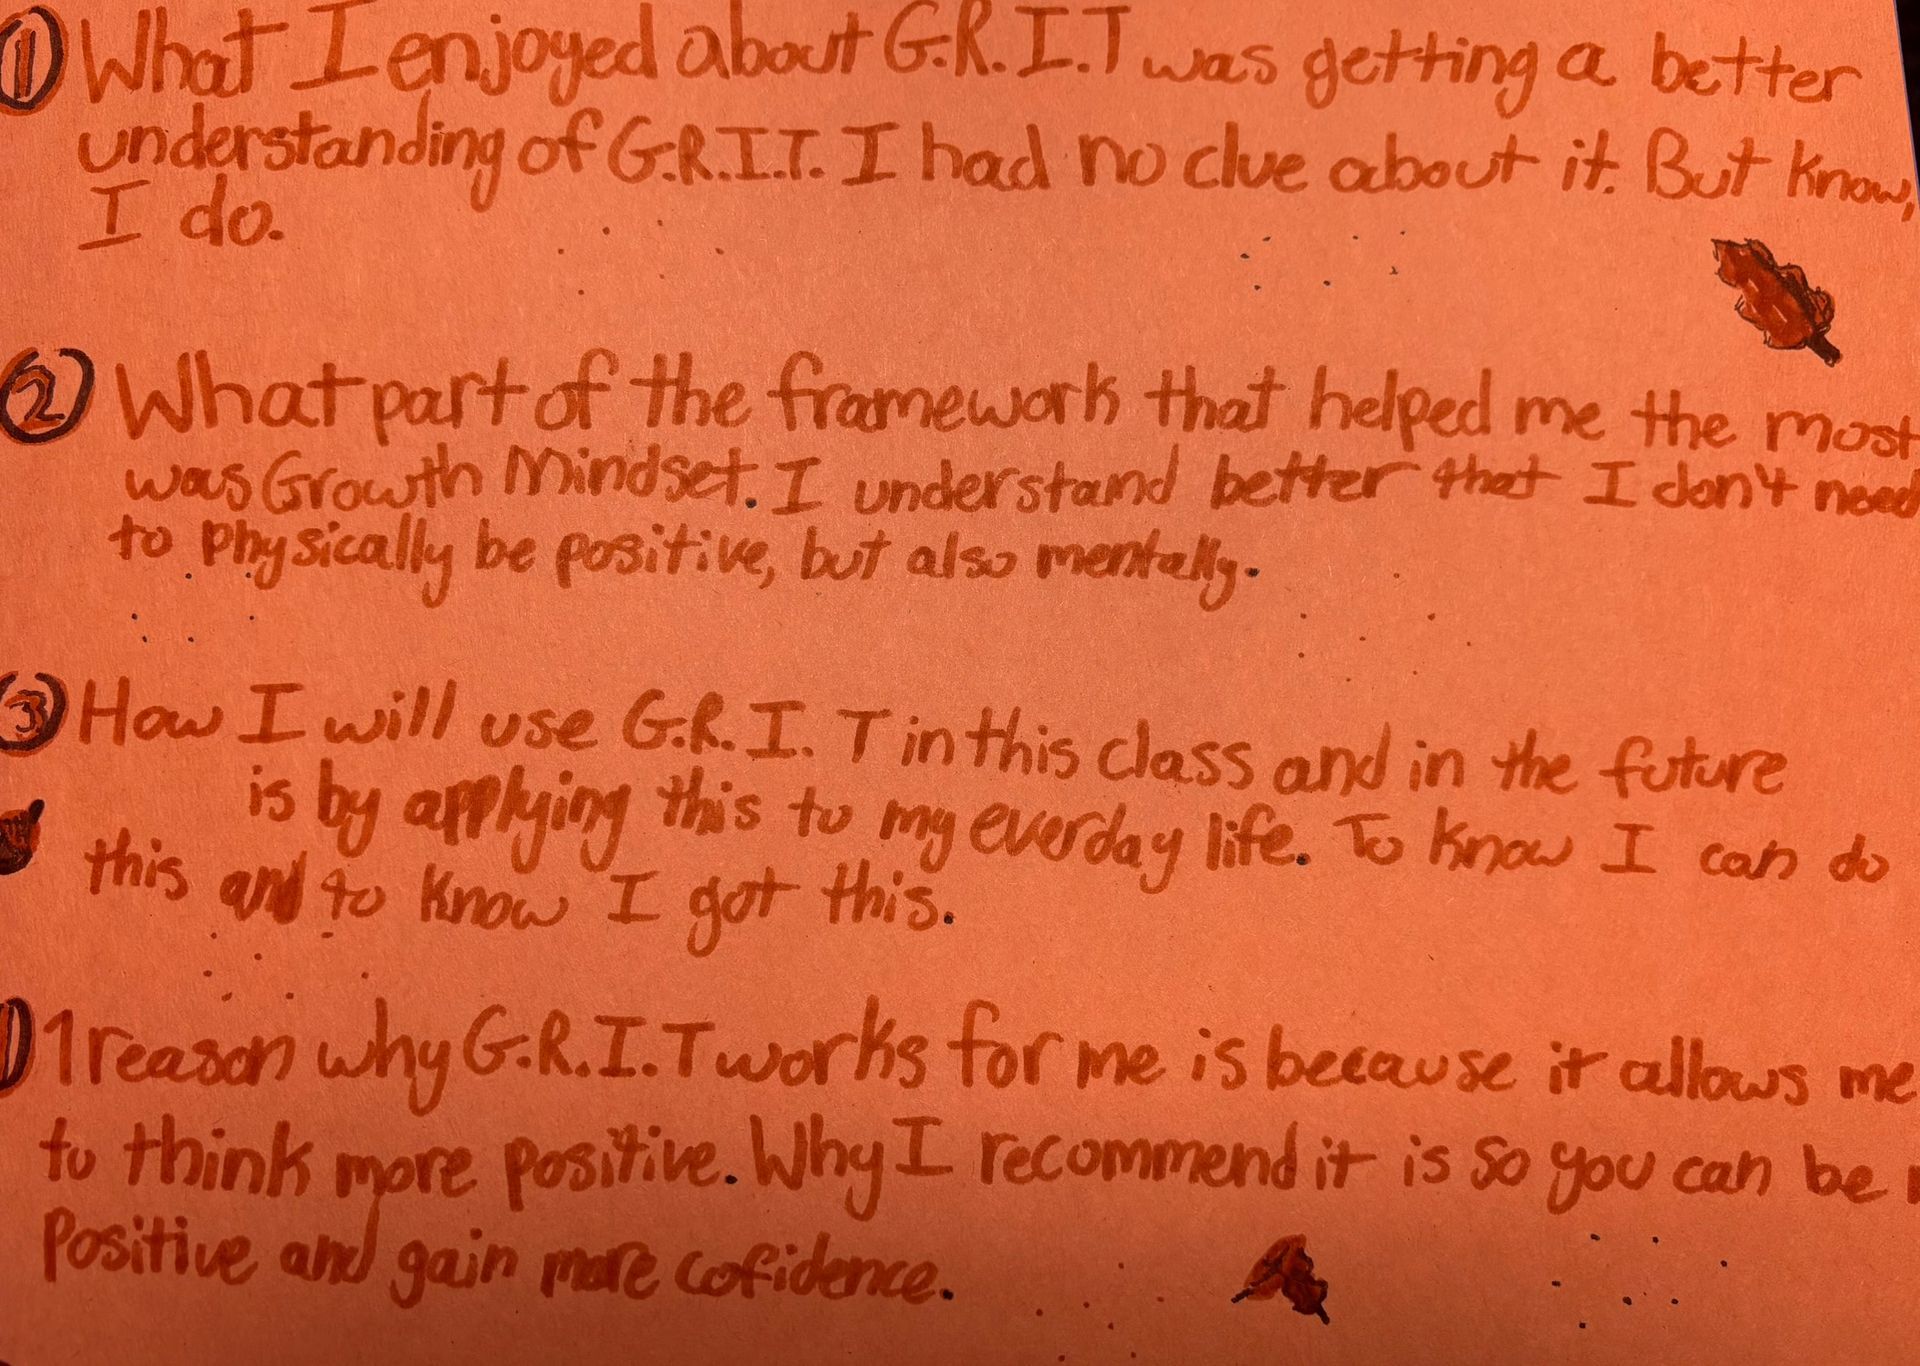 ① What I enjoyed about G.R.I.T was getting a better
understanding of G.R.I.T. I had no clue about it. But know,
I do.
② What part of the framework that helped me the most
was Growth Mindset. I understand better that I don't need
to physically be positive, but also mentally.
③ How I will use G.R.I.T in this class and in the future
is by applying this to my everday life. To know I can do
this and to know I got this.
1 reason why G.R.I.T works for me is because it allows me
to think more positive. Why I recommend it is so you can be
Positive and gain more cofidence.